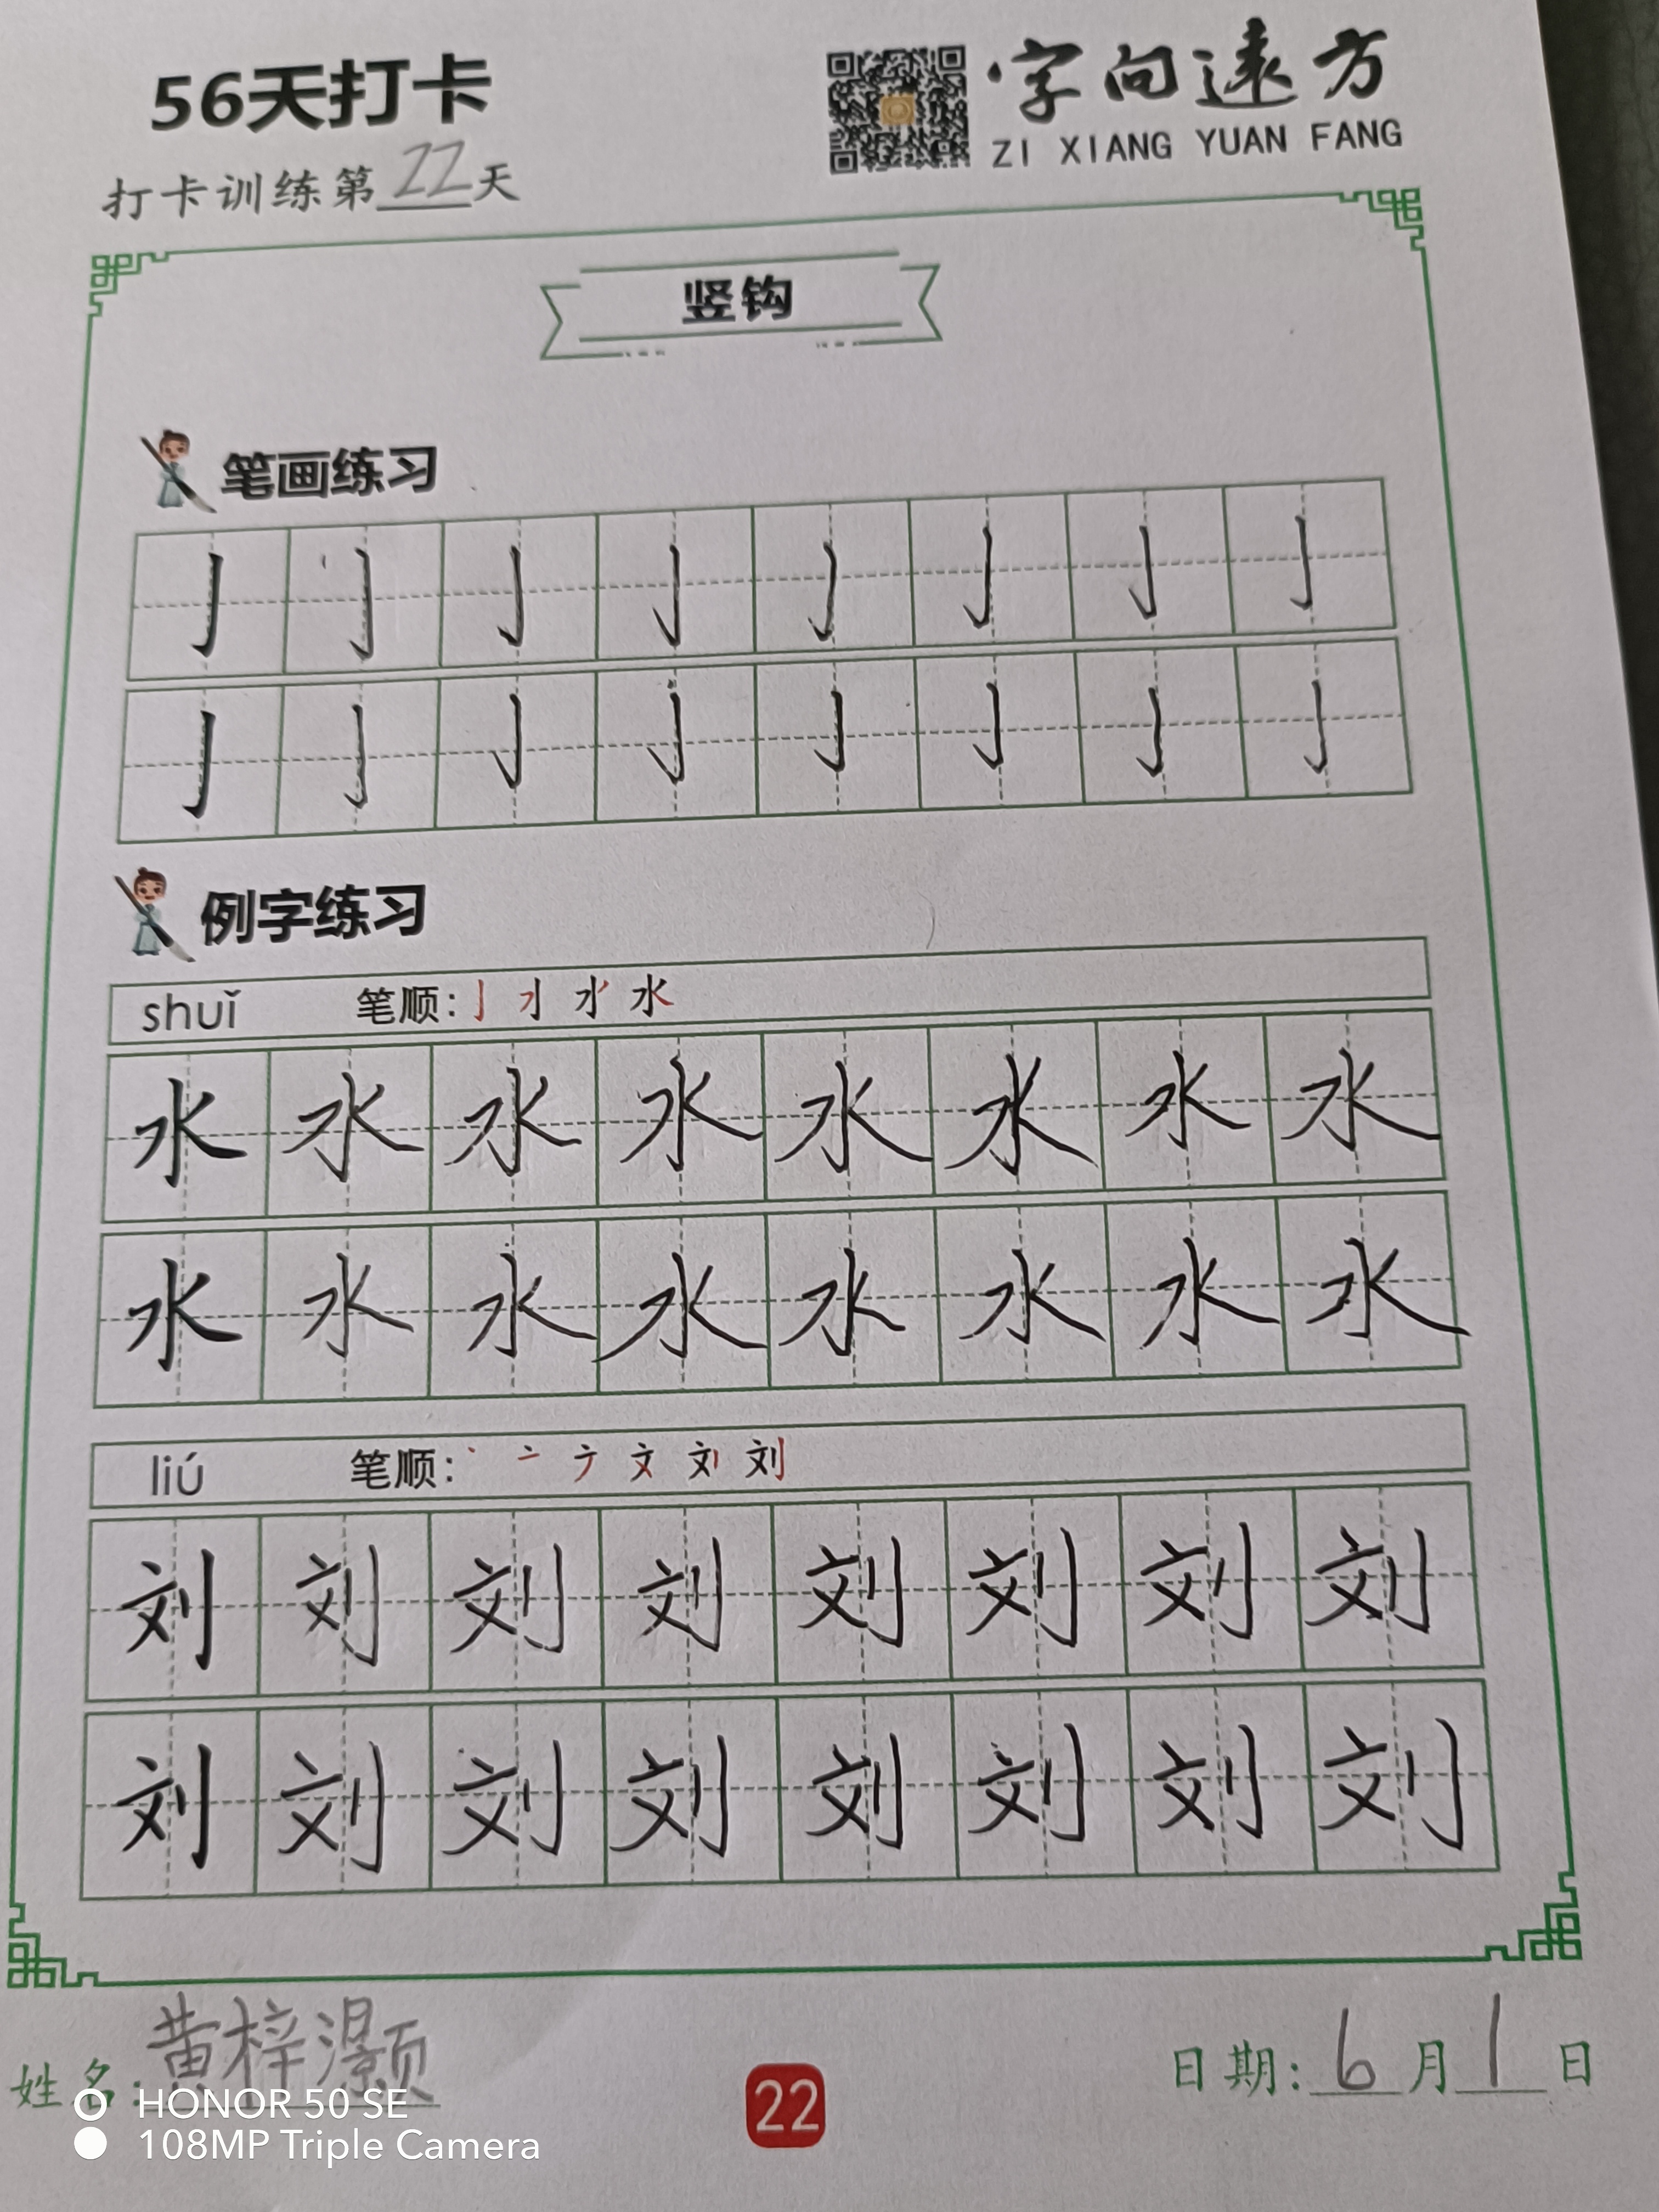 56天打卡
字向遠方
ZI XIANG YUAN FANG
打卡训练第22天
竖钩
笔画练习
亅亅亅亅亅亅亅亅
亅亅亅亅亅亅亅亅
例字练习
shuǐ 笔顺:
水水水水水水水水
水水水水水水水水
liú 笔顺:
刘刘刘刘刘刘刘刘
刘刘刘刘刘刘刘刘
姓名:黄梓灏
22
日期:6月1日
HONOR 50 SE
108MP Triple Camera